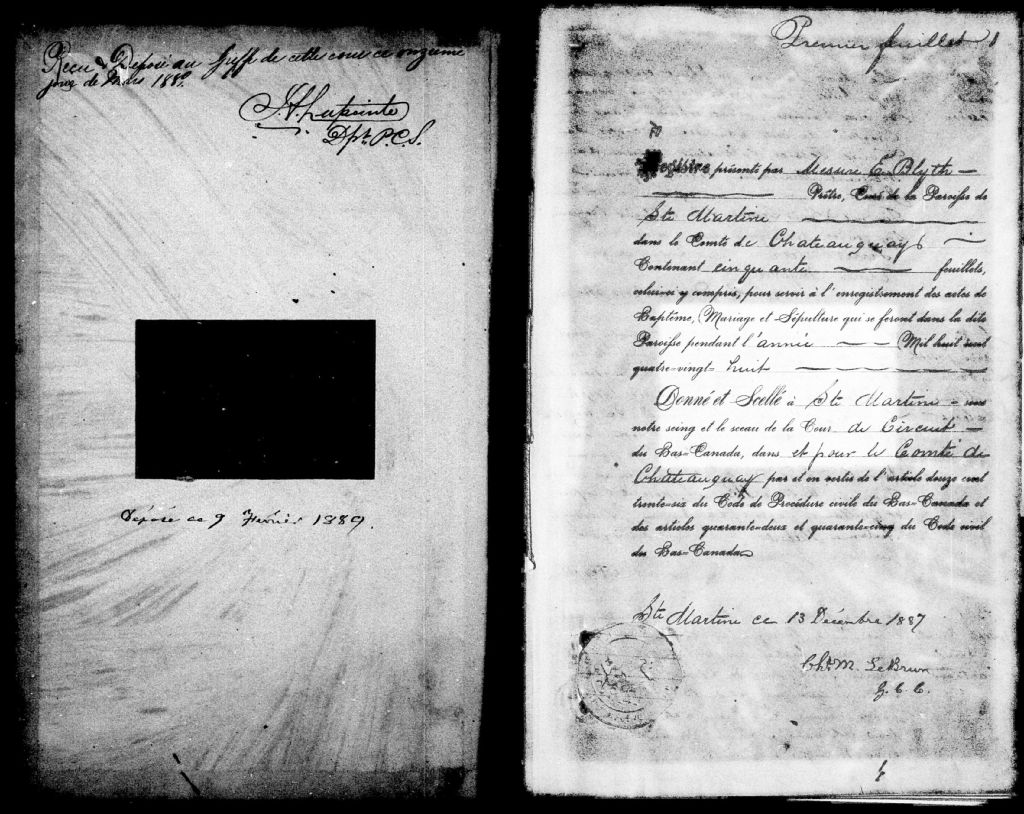 Reçu & Déposé au Greffe de cette cour ce onzième
jour de Mars 1889.
J.A. Lapointe
Dpt. P.C.S.
Déposé ce 9 Février 1889.
Premier feuillet
Registre présenté par Messire E. Blyth
Prêtre, Curé de la Paroisse de
Ste Martine
dans le Comté de Chateauguay
Contenant cinquante feuillets,
celui-ci y compris, pour servir à l'enregistrement des actes de
Baptême, Mariage et Sépulture qui se feront dans la dite
Paroisse pendant l'année Mil huit cent
quatre-vingt- huit
Donné et Scellé à Ste Martine - sous
notre seing et le sceau de la Cour de Circuit
du Bas-Canada, dans et pour le Comté de
Chateauguay par et en vertu de l'article douze cent
trente-six du Code de Procédure civile du Bas-Canada et
des articles quarante-deux et quarante-cinq du Code civil
du Bas-Canada
Ste Martine ce 13 Décembre 1887
Chs. M. LeBrun
G. C. C.